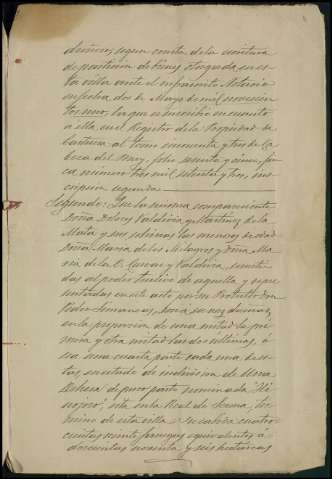 dueños, segun consta de la escritura
de particion de bienes otorgada en es-
ta villa ante el infrascrito Notario
en fecha dos de Mayo de mil novecien
tos uno, la que se inscribió en cuanto
a ella en el Registro de la Propiedad de
al tomo cincuenta y tres de Ca
beza del Buey, folio sesenta y cinco, fin
ca número tres mil setenta y tres, ins-
cripcion segunda
Segundo: Que la misma compareciente
Doña Dolores Valdivia y Martinez de la
Mata y sus sobrinas las menores de edad
Doña Maria de los Milagros y Doña Ma
ria de la O. y Valdivia, someti
das al poder tutelar de aquella y repre
sentadas en este acto por su Protutor Don
Pedro son dueñas,
en la proporcion de una mitad la pri
mera y otra mitad las dos ultimas, ó
sea una cuarta parte cada una de es-
tas, en estado de indivision de Una
Dehesa de puro pasto nominada "Hi
nojoso", sita en la Real de Serena, ter-
mino de esta villa, su cabida cuatro
cientas veinte fanegas equivalentes á
doscientas y seis hectareas